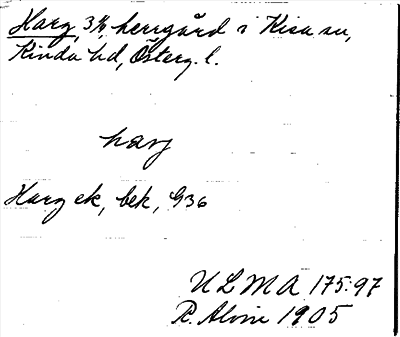 Harg, 3/4 herrgård i Kisa sn,
Kinda hd, Österg. l.
harj
Harg ek, bek, G36
ULMA 175:97
R. Alvin 1905